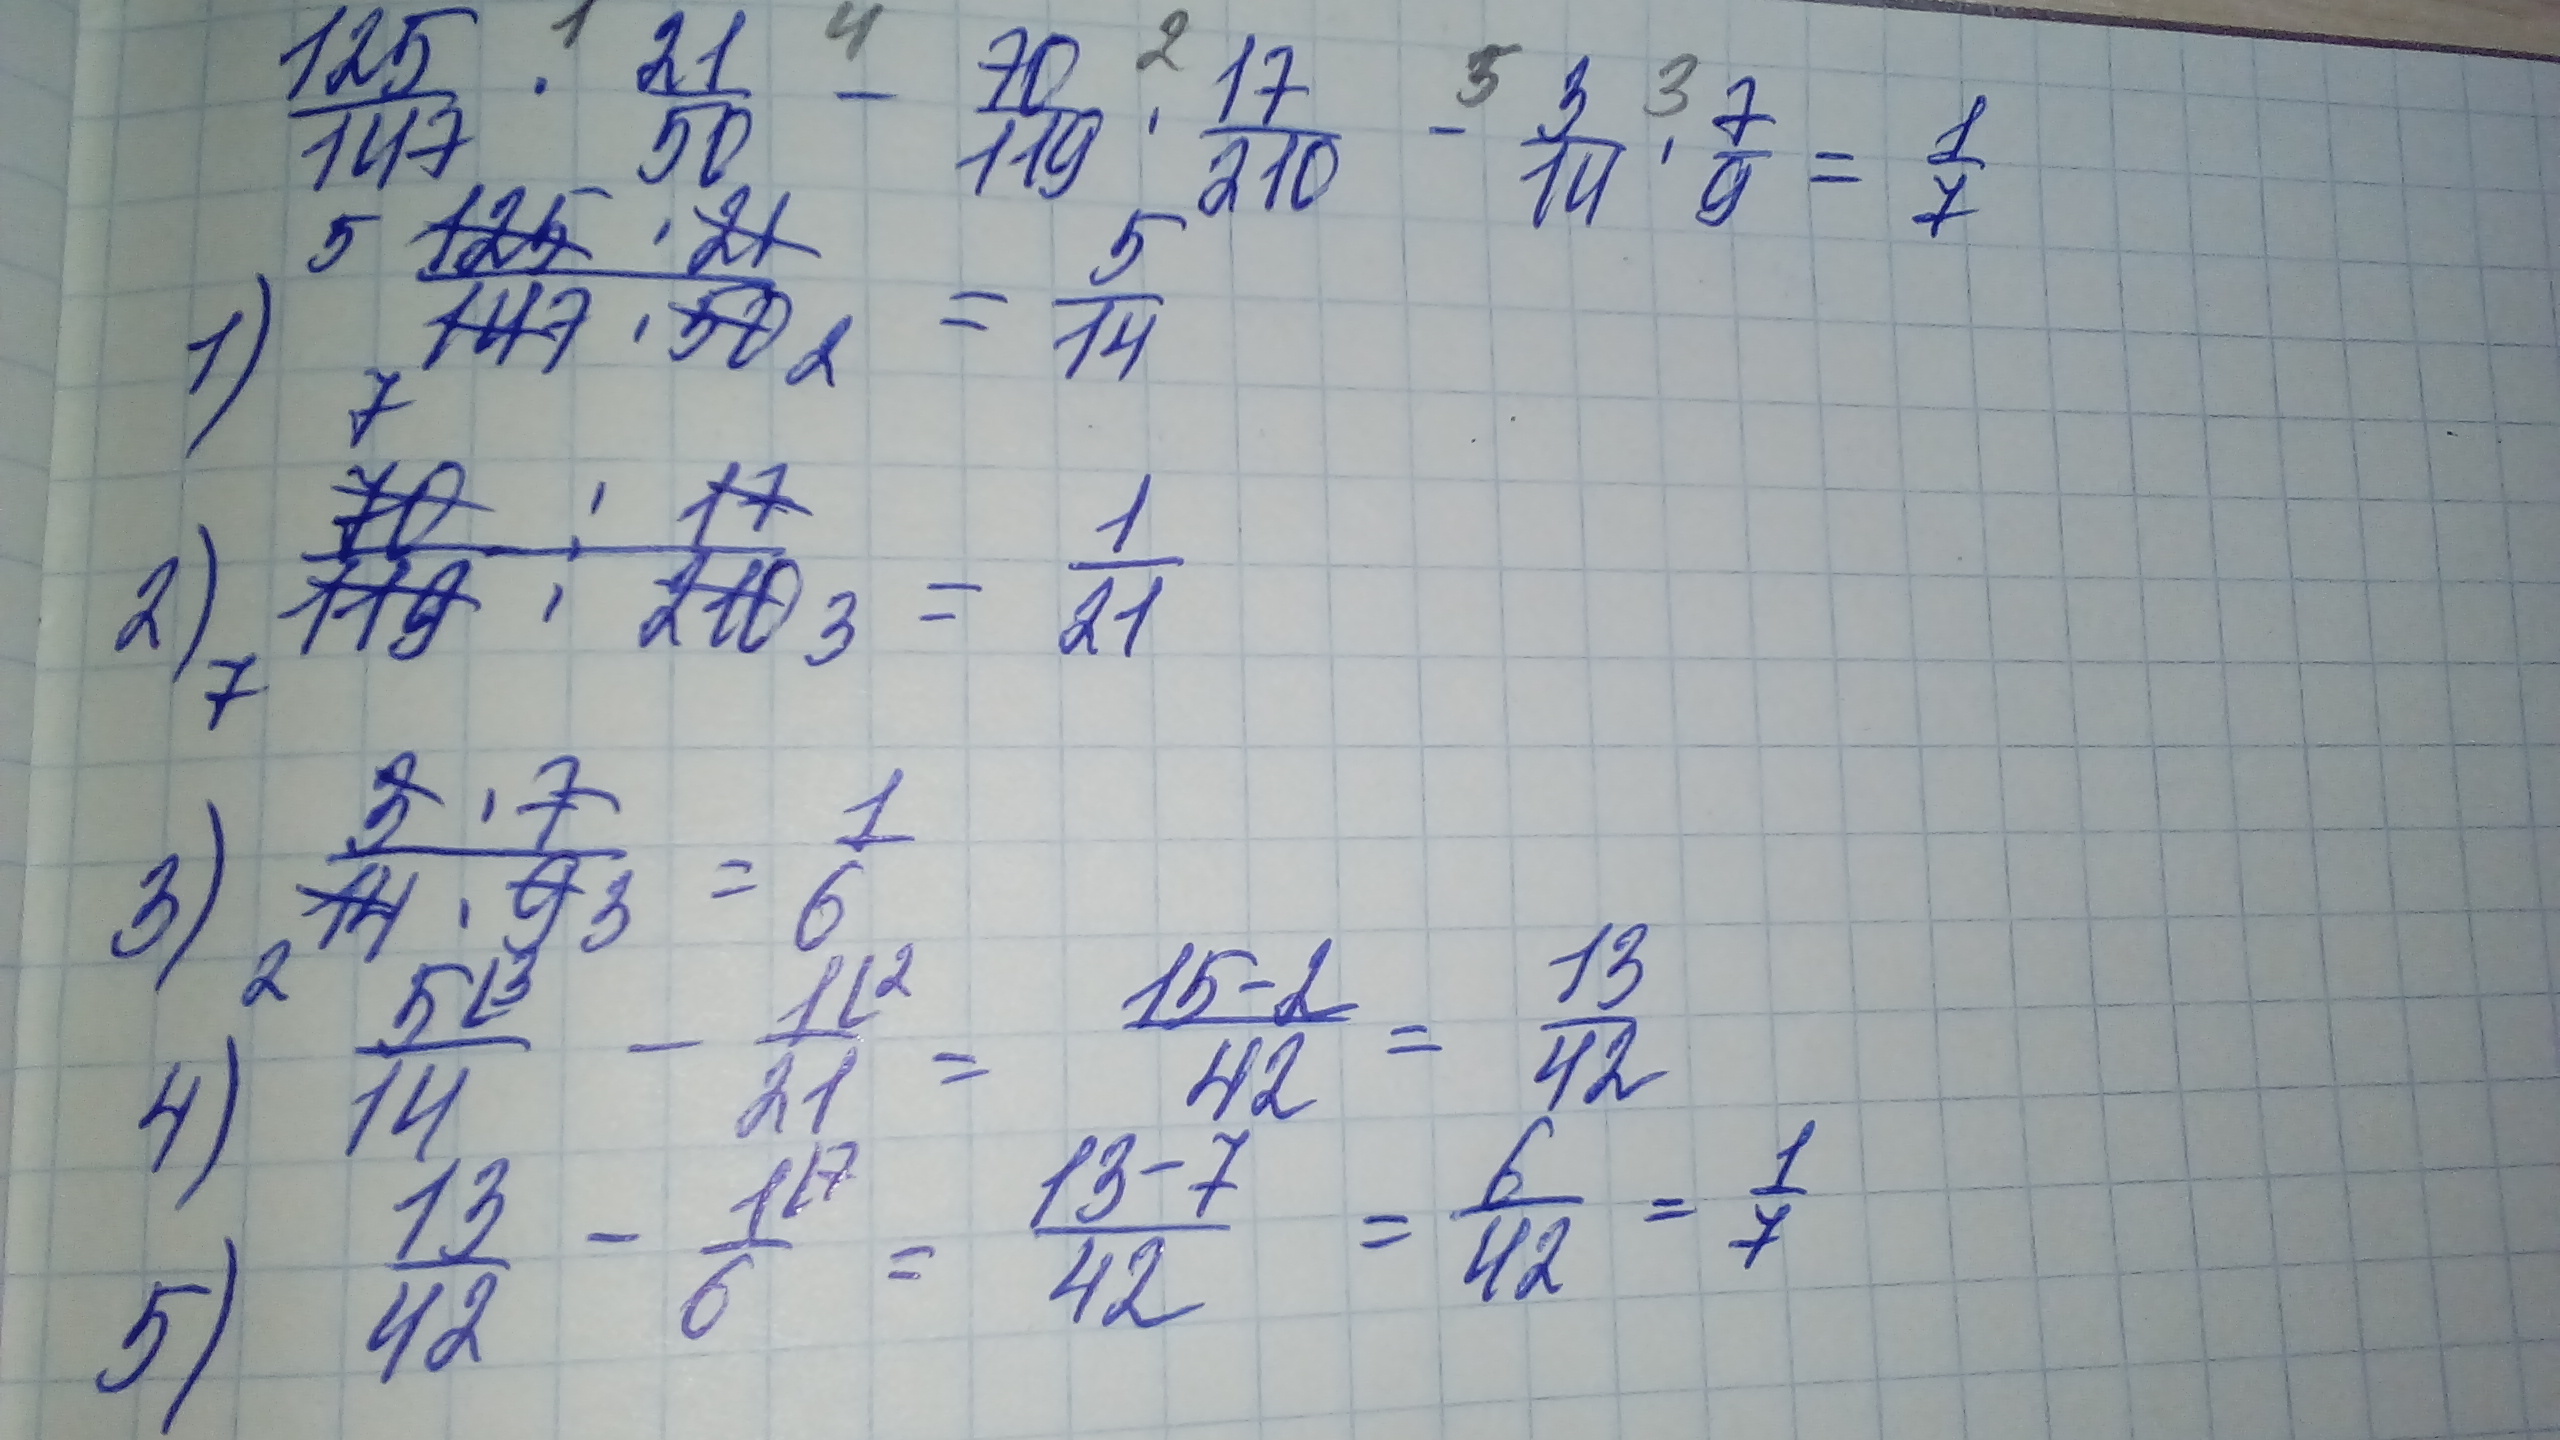 125/147 · 21/50 - 70/119 · 17/210 - 3/14 · 7/9 = 1/7
1 4 2 5 3
1) 5 125 · 21 / 7 147 · 50 2 = 5/14
2) 70 · 17 / 7 119 · 210 3 = 1/21
3) 3 · 7 / 2 14 · 9 3 = 1/6
4) 5⌊3/14 - 1⌊2/21 = 15-2/42 = 13/42
5) 13/42 - 1⌊7/6 = 13-7/42 = 6/42 = 1/7